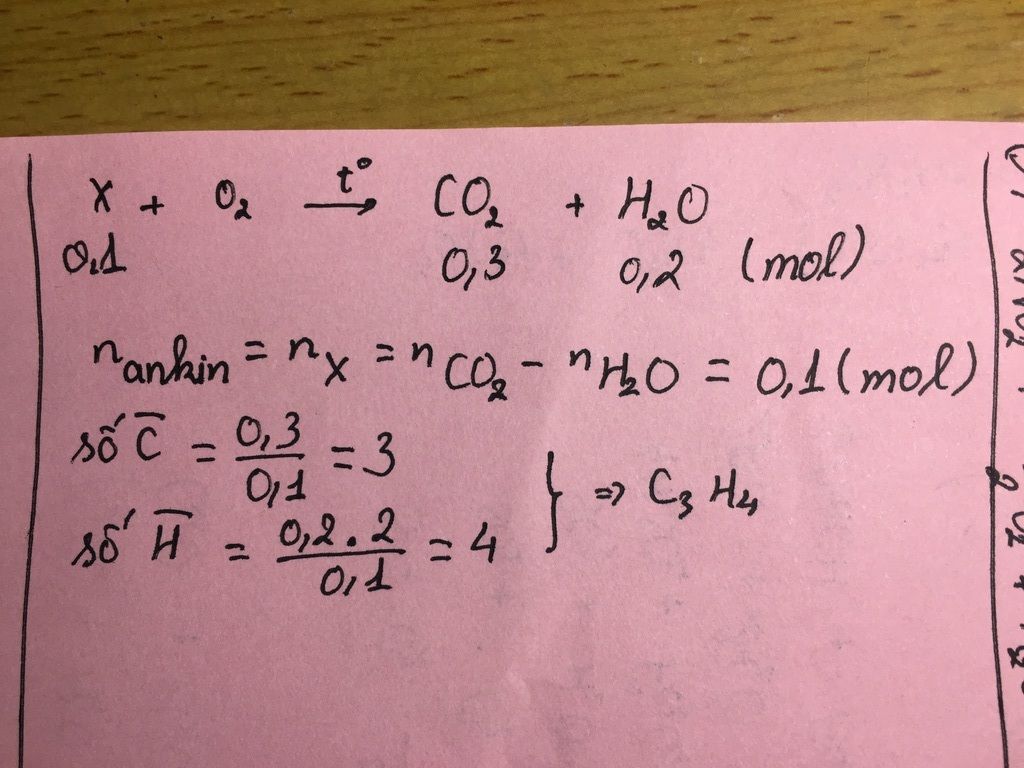 X + O₂ t° → CO₂ + H₂O
0,1 0,3 0,2 (mol)
n ankin = n X = n CO₂ - n H₂O = 0,1 (mol)
số C̅ = 0,3 / 0,1 = 3
} => C₃H₄
số H̅ = 0,2.2 / 0,1 = 4